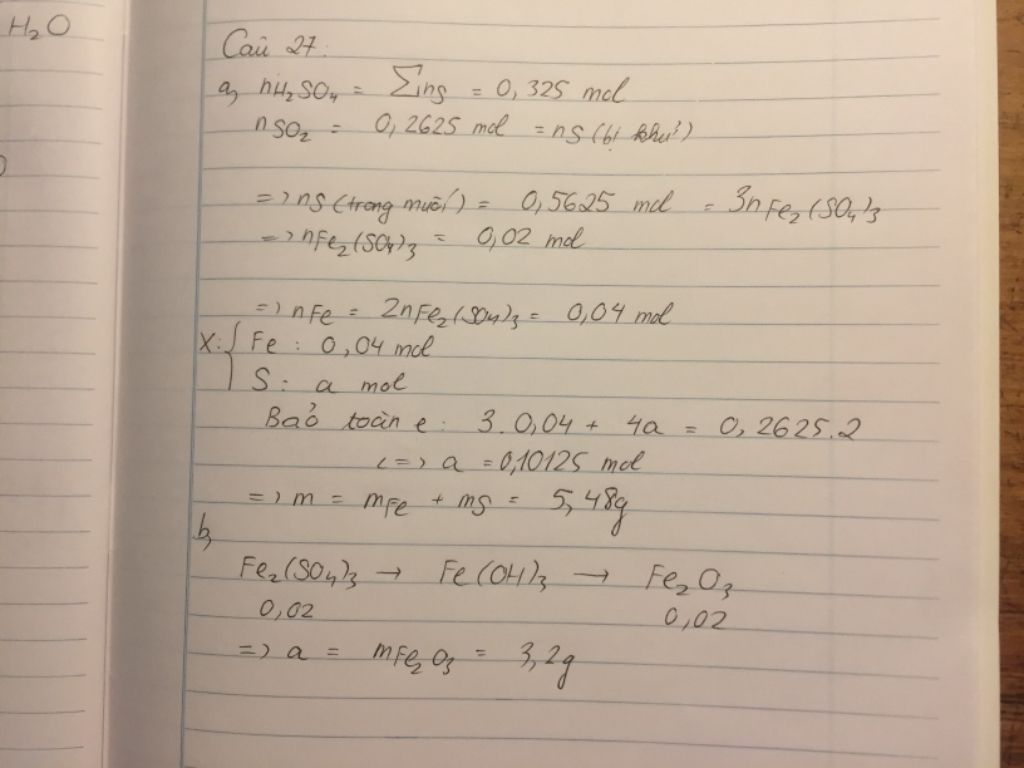 H₂O
Câu 27:
a, nH₂SO₄ = ∑nS = 0,325 mol
nSO₂ = 0,2625 mol = nS (bị khử)
=> nS (trong muối) = 0,5625 mol = 3nFe₂(SO₄)₃
=> nFe₂(SO₄)₃ = 0,02 mol
=> nFe = 2nFe₂(SO₄)₃ = 0,04 mol
X: { Fe : 0,04 mol
S : a mol
Bảo toàn e : 3.0,04 + 4a = 0,2625.2
<=> a = 0,10125 mol
=> m = mFe + mS = 5,48g
b,
Fe₂(SO₄)₃ → Fe(OH)₃ → Fe₂O₃
0,02 0,02
=> a = mFe₂O₃ = 3,2g